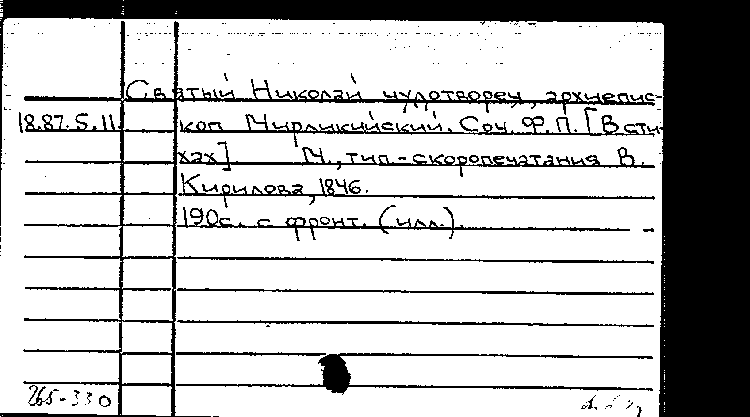 Святый Николай чудотворец, архиепис-
18.87.5.11. коп Мирликийский. Соч. Ф. П. [В сти-
хах]. М., тип-скоропечатания В.
Кирилова, 1846.
190с. с фронт. (илл.).
265-330